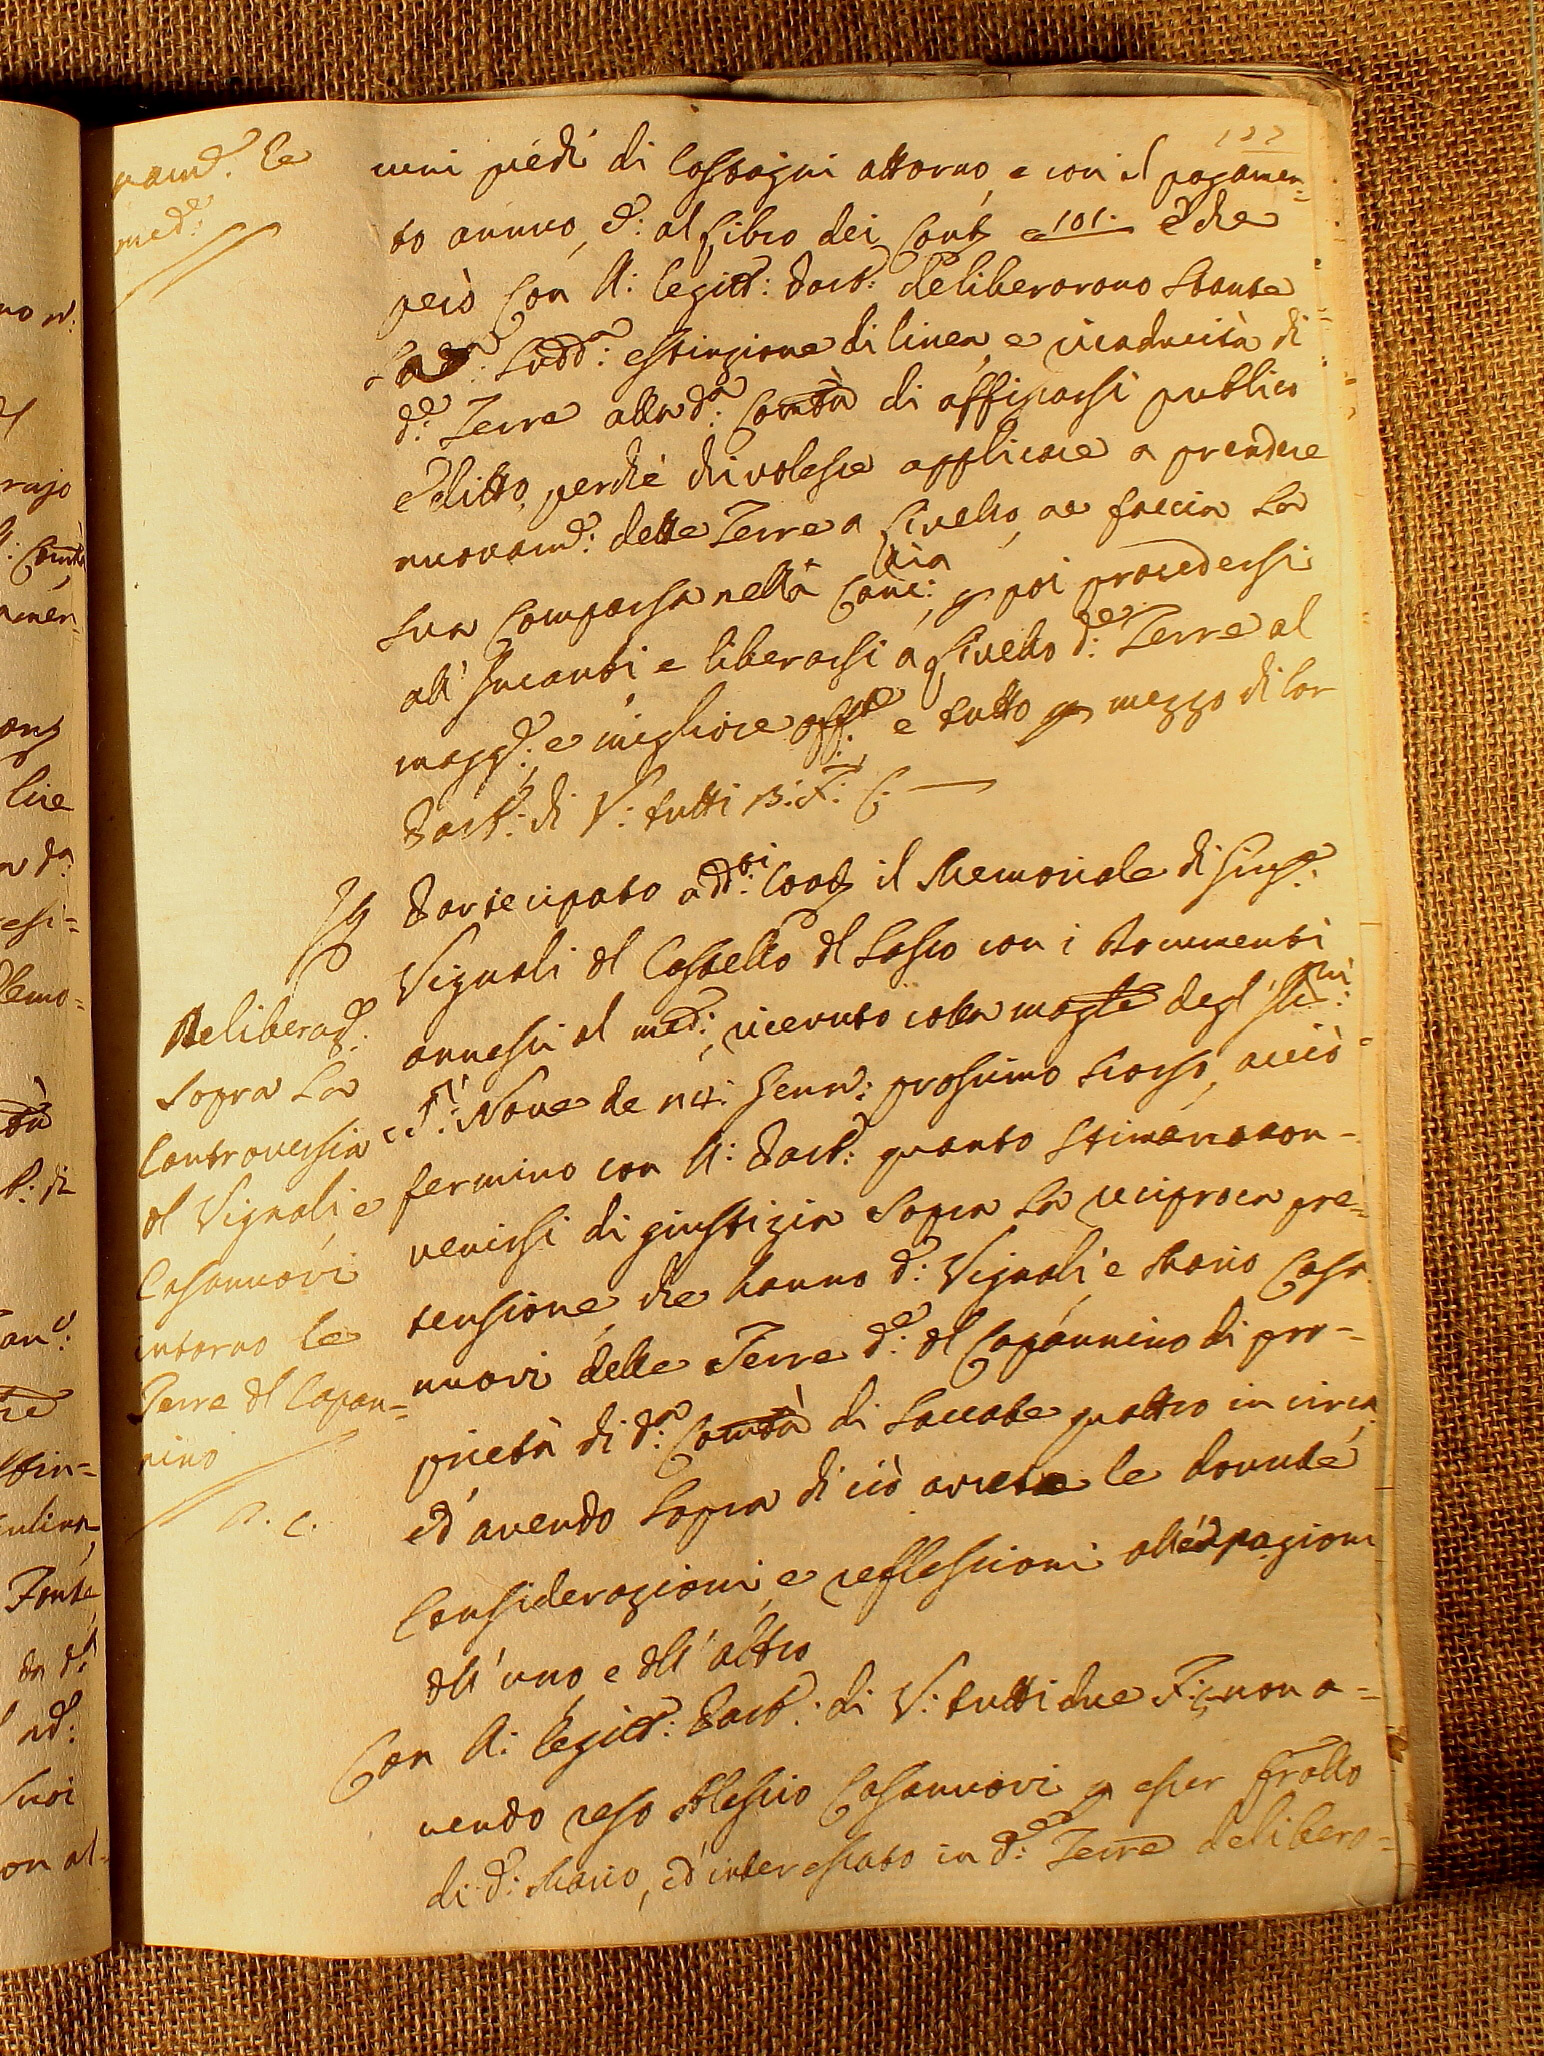 vam.e le
med.e
122
cuni piedi di Castagni attorno, e con il pagamen=
to annuo, d.o al Libro dei Cont.i a 101. e che
però Con l': legitt: Part.o deliberorono stante
la sudd.a estinzione di linea, e ricaducità di
d.e Terre alla d.a Com.tà di affissarsi publico
Editto, perchè chi volesse applicare a prendere
nuovam.e dette Terre a Livello, ne faccia la
sua Comparsa nella Canc:ria, p poi procedersi
all'Incanti e liberarsi a Livello d.e Terre al
magg.e e migliore off.te e tutto p mezzo di lor
Part.o di V: tutti B: F: C.
Partecipato a dd.ti il Memoriale di Gius.e
Vignali del Castello del Sasso con i Documenti
annessi al med.o, ricevuto colla degl' Ill:mi
SS.ri Nove de 14: Genn.o prossimo scorso, acciò
fermino con l': Part.o quanto stimano con=
venirsi di giustizia sopra la reciproca pre=
tensione, che hanno d.o Vignali, e Mario Casa
nuovi delle Terre d.e del Capannino di pro=
prietà di d.a Com.tà di Saccate quattro in circa
ed avendo sopra di ciò avute le dovute
Considerazioni, e reflessioni alle ragioni
dell'uno, e dell'altro
Con l': legitt: Part.o di V: tutti due F:, non a=
vendo reso Alessio Casanuovi p esser fratello
di d.o Mario, ed interessato in d.e Terre delibero=
Deliberaz.e
sopra la
Controversia
del Vignali, e
Casanuovi
intorno le
Terre del Capan=
nino
A. C.